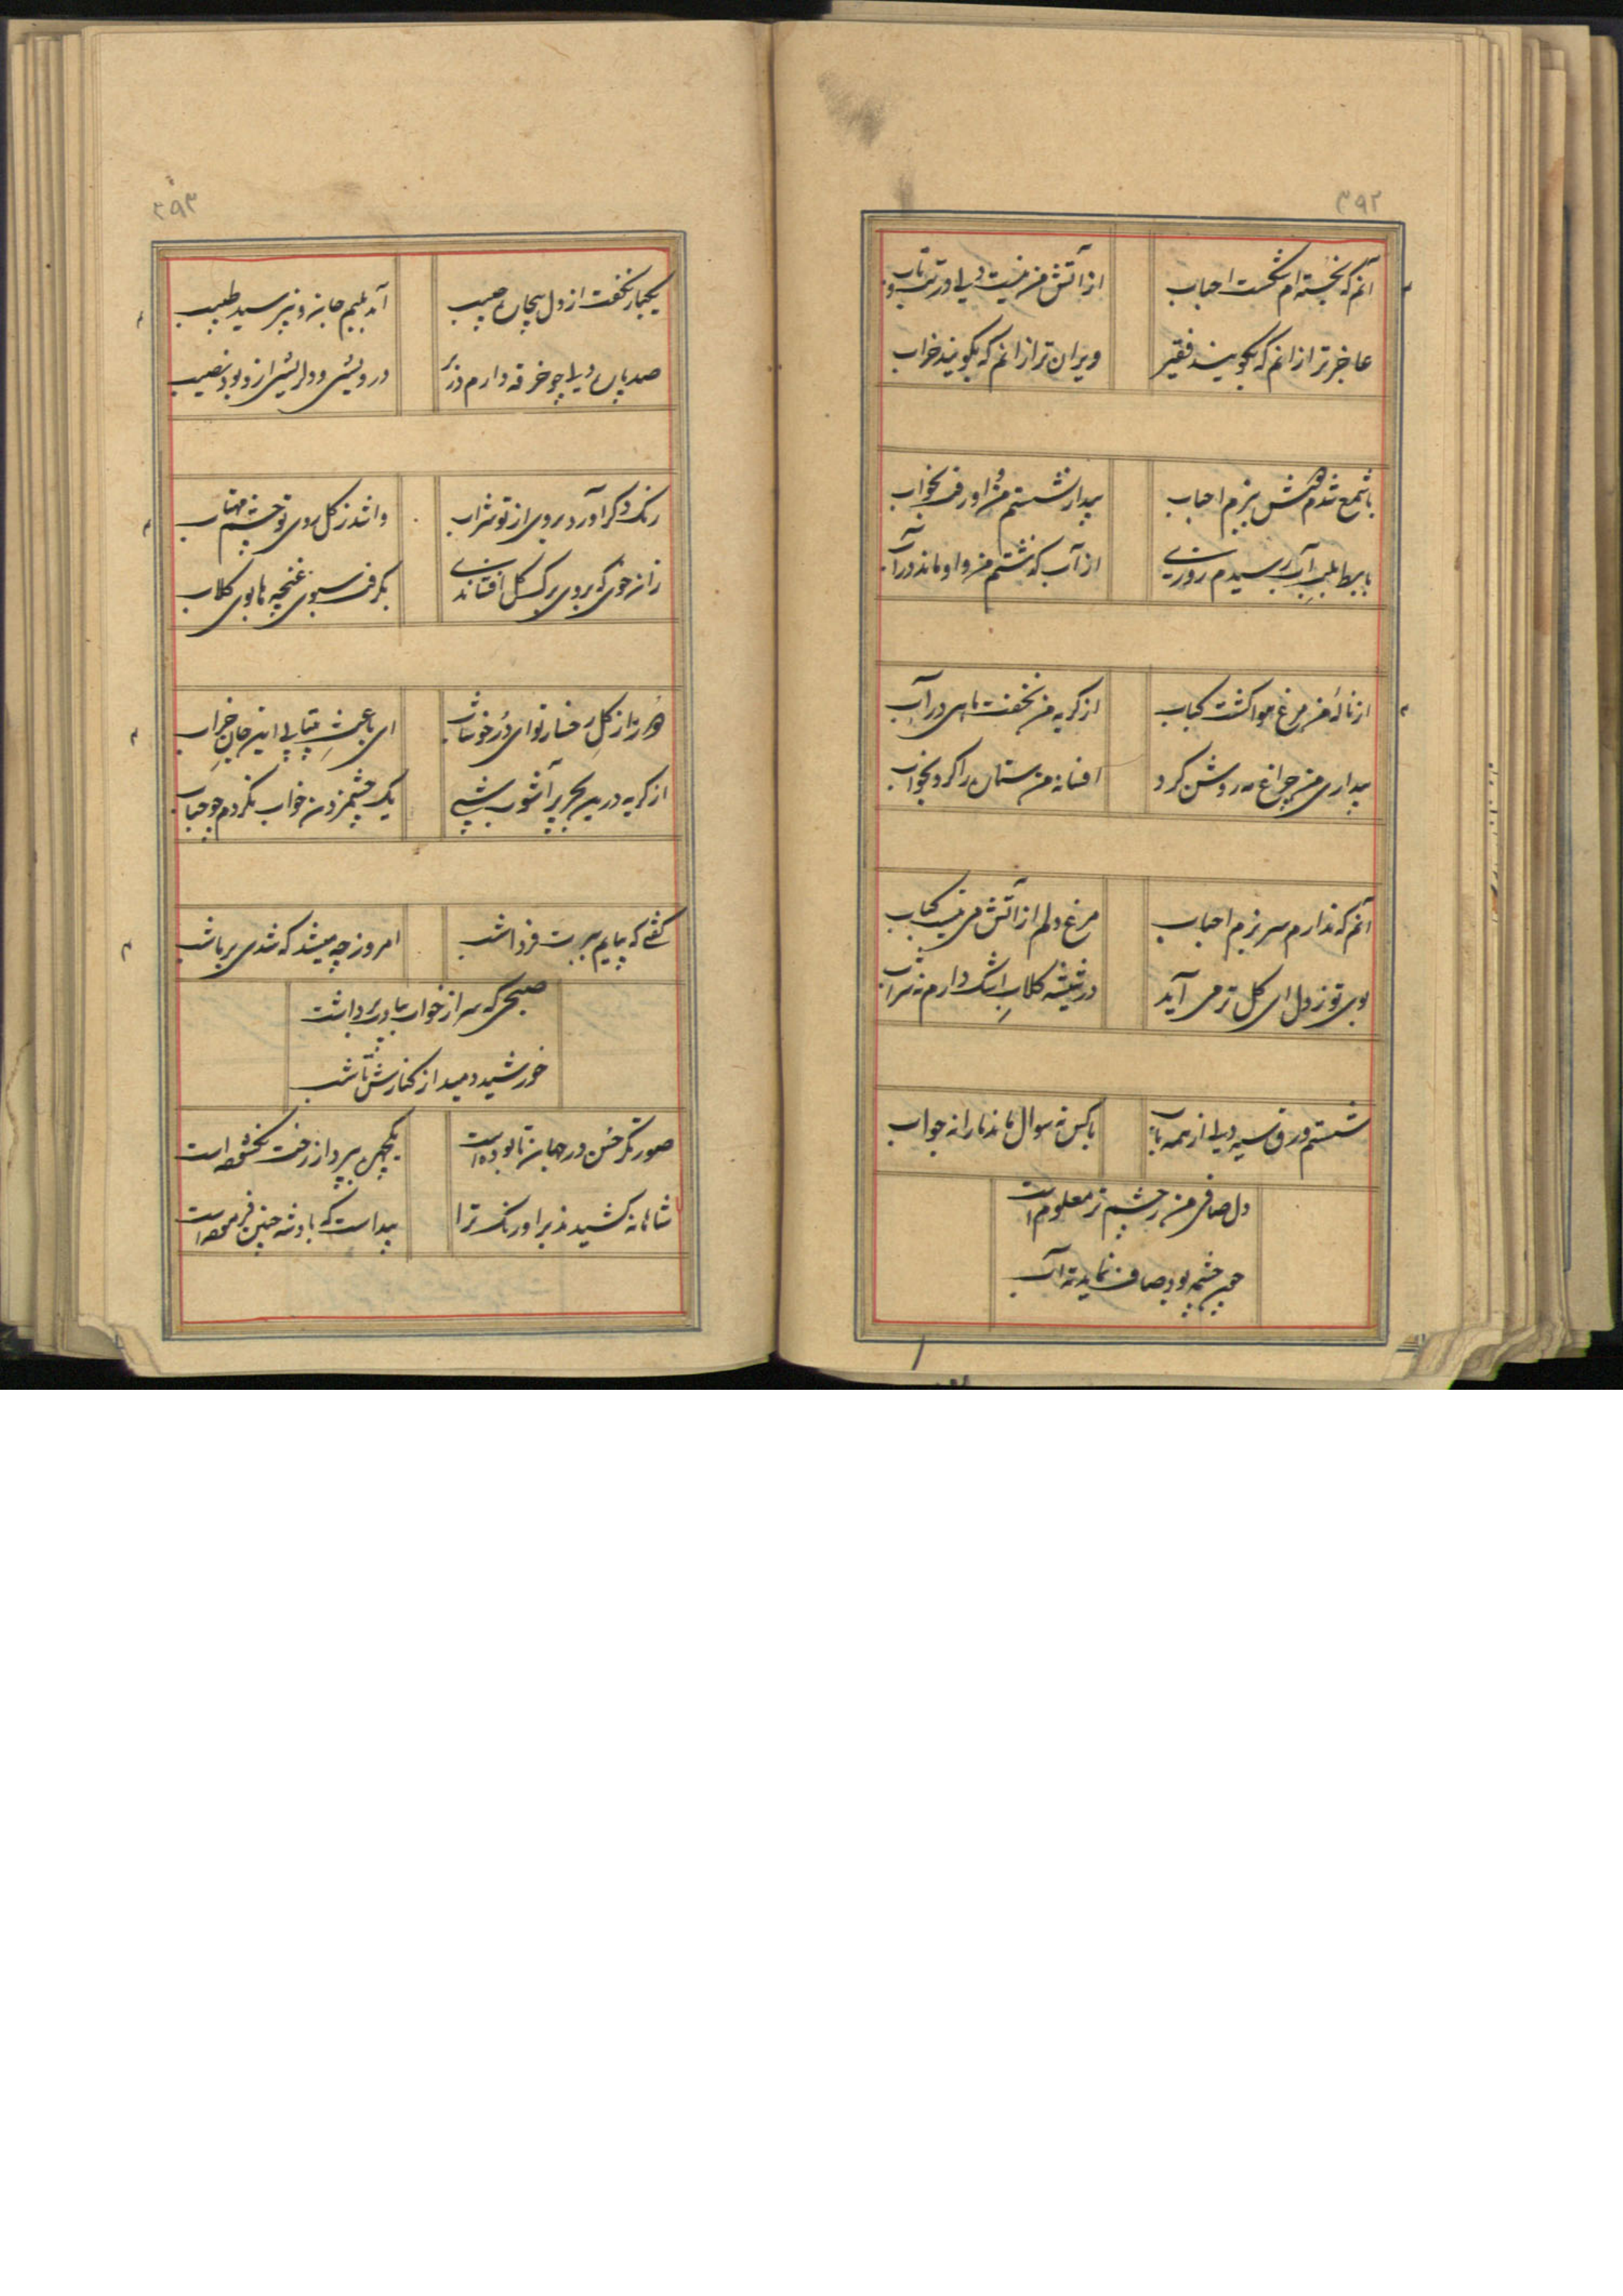 ۳۹۲
آنم که نخسته ام شکست احباب
از آتش من نیست دلی در تب و تاب
عاجزتر از انم که بگویند فقیر
ویران تر از انم که بگویند خراب
با شمع شدم ببزم احباب
بیدار نشستم من و او رفت بخواب
با بط بلب آب رسیدم روزی
از آب گذشتم من و او ماند در آب
از نالهٔ من مرغ هوا گشت کباب
از گریه من نخفت ماهی در آب
بیداری من چراغ مه روشن کرد
افسانه من ستاره را کرد بخواب
آنم که ندارم سر بزم احباب
مرغ دلم از آتش می نیست کباب
بوی تو ز دل ای گل تر می آید
در شیشه گلاب اشک دارم نه شراب
شستم ورق سیه دلی از همه باب
با کس نه سوال ماند ما را نه جواب
دل صافی من ز چشم تر معلوم است
چون چشمه بود صاف نماید ته آب
۳۹۳
یکبار نگفت از دل بیچاره حبیب
آمد بلبم جان و نپرسید طبیب
صد پاره دلی چو خرقه دارم در بر
درویشی و دلریشی ازو بود نصیب
رنگ دگر آورد بروی از تو شراب
وا شد ز گل روی تو چشم مهتاب
زان خوی که بروی برگ گل افشاندی
بگرفت سبوی غنچه ها بوی گلاب
هر روز از گل رخسار تو ای در خوشاب
ای باعث بیتابی این جان خراب
از گریه درین بحر پر آشوب شبی
یک چشم زدن خواب نکردم چو حباب
گفتی که بیایم ببرت فردا شب
امروز چه میشد که شدی بر ما شب
صبحی که سر از خواب بر داشت
خورشید دمید از کنارش تا شب
صورتگر حسن در جهان تا بوده است
یکچهره بپرداز رخت نگشوده است
شاهانه کشیده زیر اورنگ ترا
پیداست که پادشه چنین فرموده است